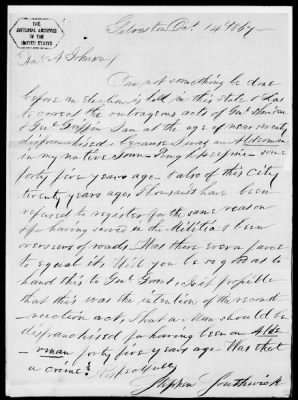 THE
NATIONAL ARCHIVES
OF THE
UNITED STATES
Galveston Oct 14 1867
Johnson
Can not something be done
before an Election is held in this State & La
to correct the outrageous acts of Genl Sheridan
& Genl Griffin I am at the age of now seventy
disfranchised because I was an Alderman
in my native Town some
forty five years ago & also of this City
twenty years ago Thousands have been
refused to register for the same reason
& for having served in the Militia & been
overseers of roads. Was there ever a farce
to equal it Will you be so good as to
hand this to Genl Grant, is it possible
that this was the intention of the recon
struction acts, That a Man should be
disfranchised for having been an Alde
rman forty five years ago Was that
a crime? Respectfully
Stephen Southwick